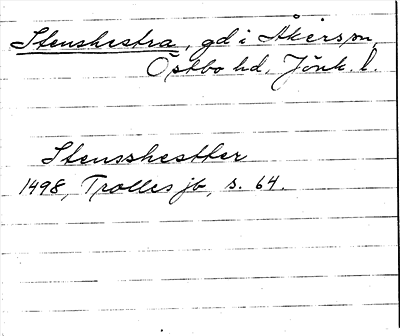 Stenshestra, gd i Åkers sn,
Östbo hd, Jönk. l.
Stensshesther
1498, Trolles jb, s. 64.